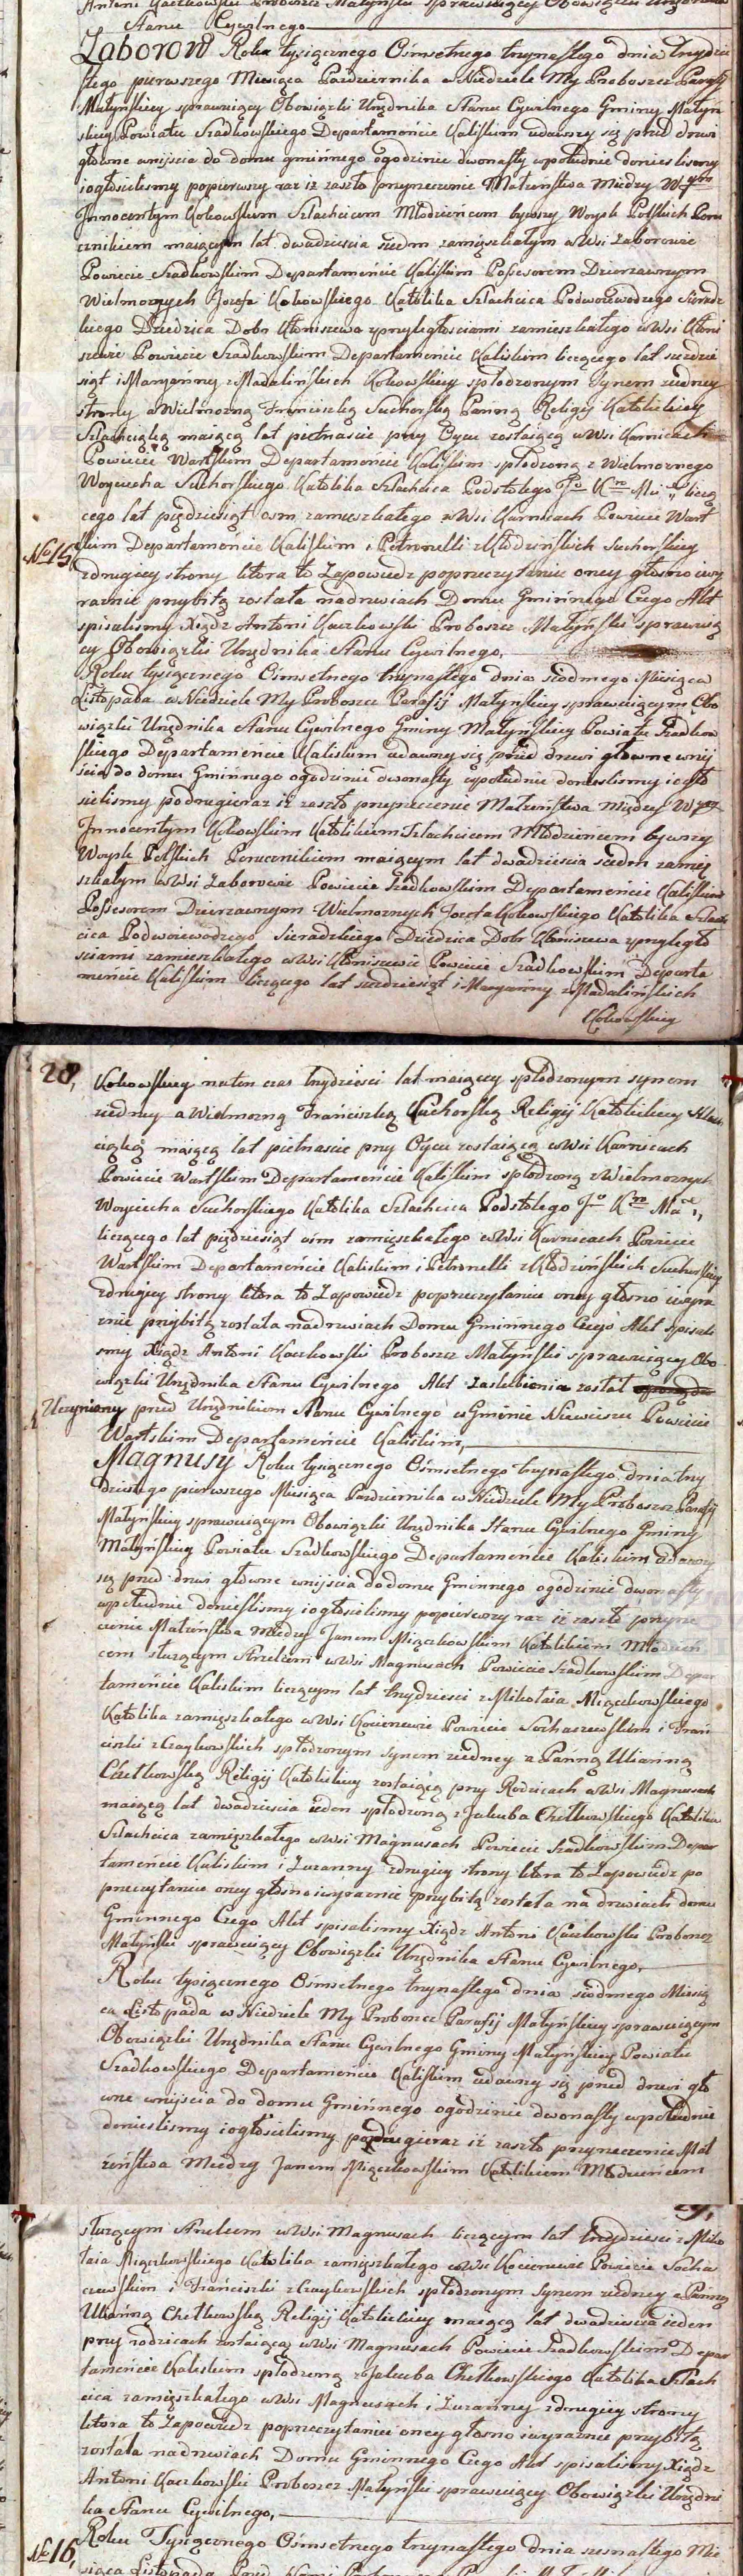 Antoni Kaczkowski Proboszcz Małyński sprawuiący Obowiązki Urzędnika
Stanu Cywilnego
Zaborow Roku tysiącznego Osmsetnego trzynastego dnia trzydzie
stego pierwszego Miesiąca Pazdziernika w Niedziele My Proboszcz Parafij
Małyńskiey sprawuiący Obowiązki Urzędnika Stanu Cywilnego Gminy Małyń
skiey Powiatu Szadkowskiego Departamencie Kaliskim udawszy się przed drzwi
głowne wnijscia do domu gminnego ogodzinie dwonasty wpołudnie donieslismy
iogłosilismy popierwszy raz iz zaszło przyrzeczenie Małzeństwa Miedzy W
Jnnocentym Kokowskim Szlachcicem Młodzieńcem bywszy Woysk Polskich Poru
cznikiem maiącym lat dwadziescia siedm zamięszkałym wWsi Zaborowie
Powiecie Szadkowskim Departamencie Kaliskim Possesorem Dzierzawnym
Wielmoznych Jozefa Kokowskiego Katolika Szlachcica Podwoiewodzego Sieradz
kiego Dziedzica Dobr Kłoniszewa zprzyległosciami zamieszkałego wWsi Kłoni
szewie Powiecie Szadkowskim Departamencie Kaliskim liczącego lat siedzie
siąt i Maryanny z Madalińskich Kokowskiey spłodzonym Synem iedney
strony a Wielmozną Franciszką Suchorską Panną Religij Katolickiey
Szlachcąką maiącą lat pietnascie przy Oycu zostaiącą wWsi Karnicach
Powiecie Wartskim Departamencie Kaliskim spłodzoną z Wielmoznego
Woyciecha Suchorskiego Katolika Szlachcica Podstolego liczą
cego lat pięćdziesiąt osm zamieszkałego wWsi Karnicach Powiecie Wart
No 15 skim Departamencie Kaliskim i Petronelli z Kłodzińskich Suchorskiey
zdrugiey strony ktora to Zapowiedz poprzeczytaniu oney głosno iwy
raznie przybitą została nadrzwiach Domu Gminnego Czego Akt
spisalismy Xiądz Antoni Kaczkowski Proboszcz Małyński sprawuią
cy Obowiązki Urzędnika Stanu Cywilnego,
Roku tysiącznego Osmsetnego trzynastego dnia siodmego Miesiąca
Listopada w Niedziele My Proboszcz Parafij Małyńskiey sprawuiącym Obo
wiązki Urzędnika Stanu Cywilnego Gminy Małyńskiey Powiatu Szadkow
skiego Departamencie Kaliskim udawszy się przed drzwi głowne wnij
scia do domu Gminnego ogodzinie dwonasty wpołudnie donieslismy iogło
silismy podrugieraz iz zaszło przyrzeczenie Małzenstwa Między W
Jnnocentym Kokowskim Katolikiem Szlachcicem Młodzieńcem bywszy
Woysk Polskich Porucznikiem maiącym lat dwadziescia siedm zamię
szkałym wWsi Zaborowie Powiecie Szadkowskim Departamencie Kaliskim
Possesorem Dzierzawnym Wielmoznych Jozefa Kokowskiego Katolika Szlach
cica Podwoiewodzego Sieradzkiego Dziedzica Dobr Kłoniszewa zprzyległo
sciami zamieszkałego wWsi Kłoniszewie Powiecie Szadkowskim Departa
mencie Kaliskim liczącego lat siedziesiąt i Maryanny z Madalińskich
Kokowskiey
28,
Kokowskiey naten czas trzydziesci lat maiącey spłodzonym synem
iedney a Wielmozną Franciszką Suchorską Religij Katolickiey Szlach
ciąką maiącą lat pietnascie przy Oycu zostaiącą wWsi Karnicach
Powiecie Wartskim Departamencie Kaliskim spłodzoną z Wielmoznych
Woyciecha Suchorskiego Katolika Szlachcica Podstolego
liczącego lat pięćdziesiąt osm zamięszkałego wWsi Karnicach Powiecie
Wartskim Departamencie Kaliskim i Petronelli z Kłodzińskich Suchorskiey
zdrugiey strony ktora to Zapowiedz poprzeczytaniu oney głosno iwyra
znie przybitą została nadrzwiach Domu Gminnego Czego Akt spisali
smy Xiądz Antoni Kaczkowski Proboszcz Małyński sprawuiący Obo
wiązki Urzędnika Stanu Cywilnego Akt Zaslubienia został
Uczyniony przed Urzędnikiem Stanu Cywilnego w Gminie Niewiesz Powiecie
Wartskim Departamencie Kaliskim,
Magnusy Roku tysiącznego Osmsetnego trzynastego dnia trzy
dziestego pierwszego Miesiąca Pazdziernika w Niedziele My Proboszcz Parafij
Małyńskiey sprawuiącym Obowiązki Urzędnika Stanu Cywilnego Gminy
Małyńskiey Powiatu Szadkowskiego Departamencie Kaliskim udawszy
się przed drzwi głowne wnijscia dodomu Gminnego ogodzinie dwonasty
wpołudnie donieslismy iogłosilismy popierwszy raz iz zaszło przyrze
czenie Małzeństwa miedzy Janem Miączkowskim Katolikiem Młodzień
cem słuzącym Strzelcem wWsi Magnusach Powiecie Szadkowskim Depar
tamencie Kaliskim liczącym lat trzydziesci z Mikołaia Miączkowskiego
Katolika zamięszkałego wWsi Kocieniewie Powiecie Sochaszewskim i Fran
ciszki z Czaykowskich spłodzonym synem iedney a Panną Ulianną
Chełkowską Religij Katolickiey zostaiącą przy Rodzicach wWsi Magnusach
maiącą lat dwadziescia ieden spłodzoną z Jakuba Chełkowskiego Katolika
Szlachcica zamięszkałego wWsi Magnusach Powiecie Szadkowskim Depar
tamencie Kaliskim i Zuzanny zdrugiey strony ktora to Zapowiedz po
przeczytaniu oney głosno iwyraznie przybitą została na drzwiach domu
Gminnego Czego Akt spisalismy Xiądz Antoni Kaczkowski Proboszcz
Małyński sprawuiący Obowiązki Urzędnika Stanu Cywilnego,
Roku tysiącznego Osmsetnego trzynastego dnia siodmego Miesią
ca Listopada w Niedziele My Proboszcz Parafij Małyńskiey sprawuiącym
Obowiązki Urzędnika Stanu Cywilnego Gminy Małyńskiey Powiatu
Szadkowskiego Departamencie Kaliskim udawszy się przed drzwi gło
wne wnijscia do domu Gminnego ogodzinie dwonasty wpołudnie
donieslismy iogłosilismy podrugieraz iz zaszło przyrzeczenie Mał
zeństwa Miedzy Janem Miączkowskim Katolikiem Młodzieńcem
29,
słuzącym Strzelcem wWsi Magnusach liczącym lat trzydziesci z Miko
łaia Miączkowskiego Katolika zamięszkałego wWsi Kocieniewie Powiecie Socha
czewskim i Franciszki z Czaykowskich spłodzonym Synem iedney a Panną
Ulianną Chełkowską Religij Katolickiey maiącą lat dwadziescia ieden
przy rodzicach zostaiącą wWsi Magnusach Powiecie Szadkowskim Depar
tamencie Kaliskim spłodzoną z Jakuba Chełkowskiego Katolika Szlach
cica zamięszkałego wWsi Magnusach i Zuzanny zdrugiey strony
ktora to Zapowiedz poprzeczytaniu oney głosno iwyraznie przybitą
została nadrzwiach Domu Gminnego Czego Akt spisalismy Xiądz
Antoni Kaczkowski Proboszcz Małyński sprawuiący Obowiązki Urzędni
ka Stanu Cywilnego,
No 16 Roku Tysiącznego Osmsetnego trzynastego dnia szesnastego Mie
siąca Listopada